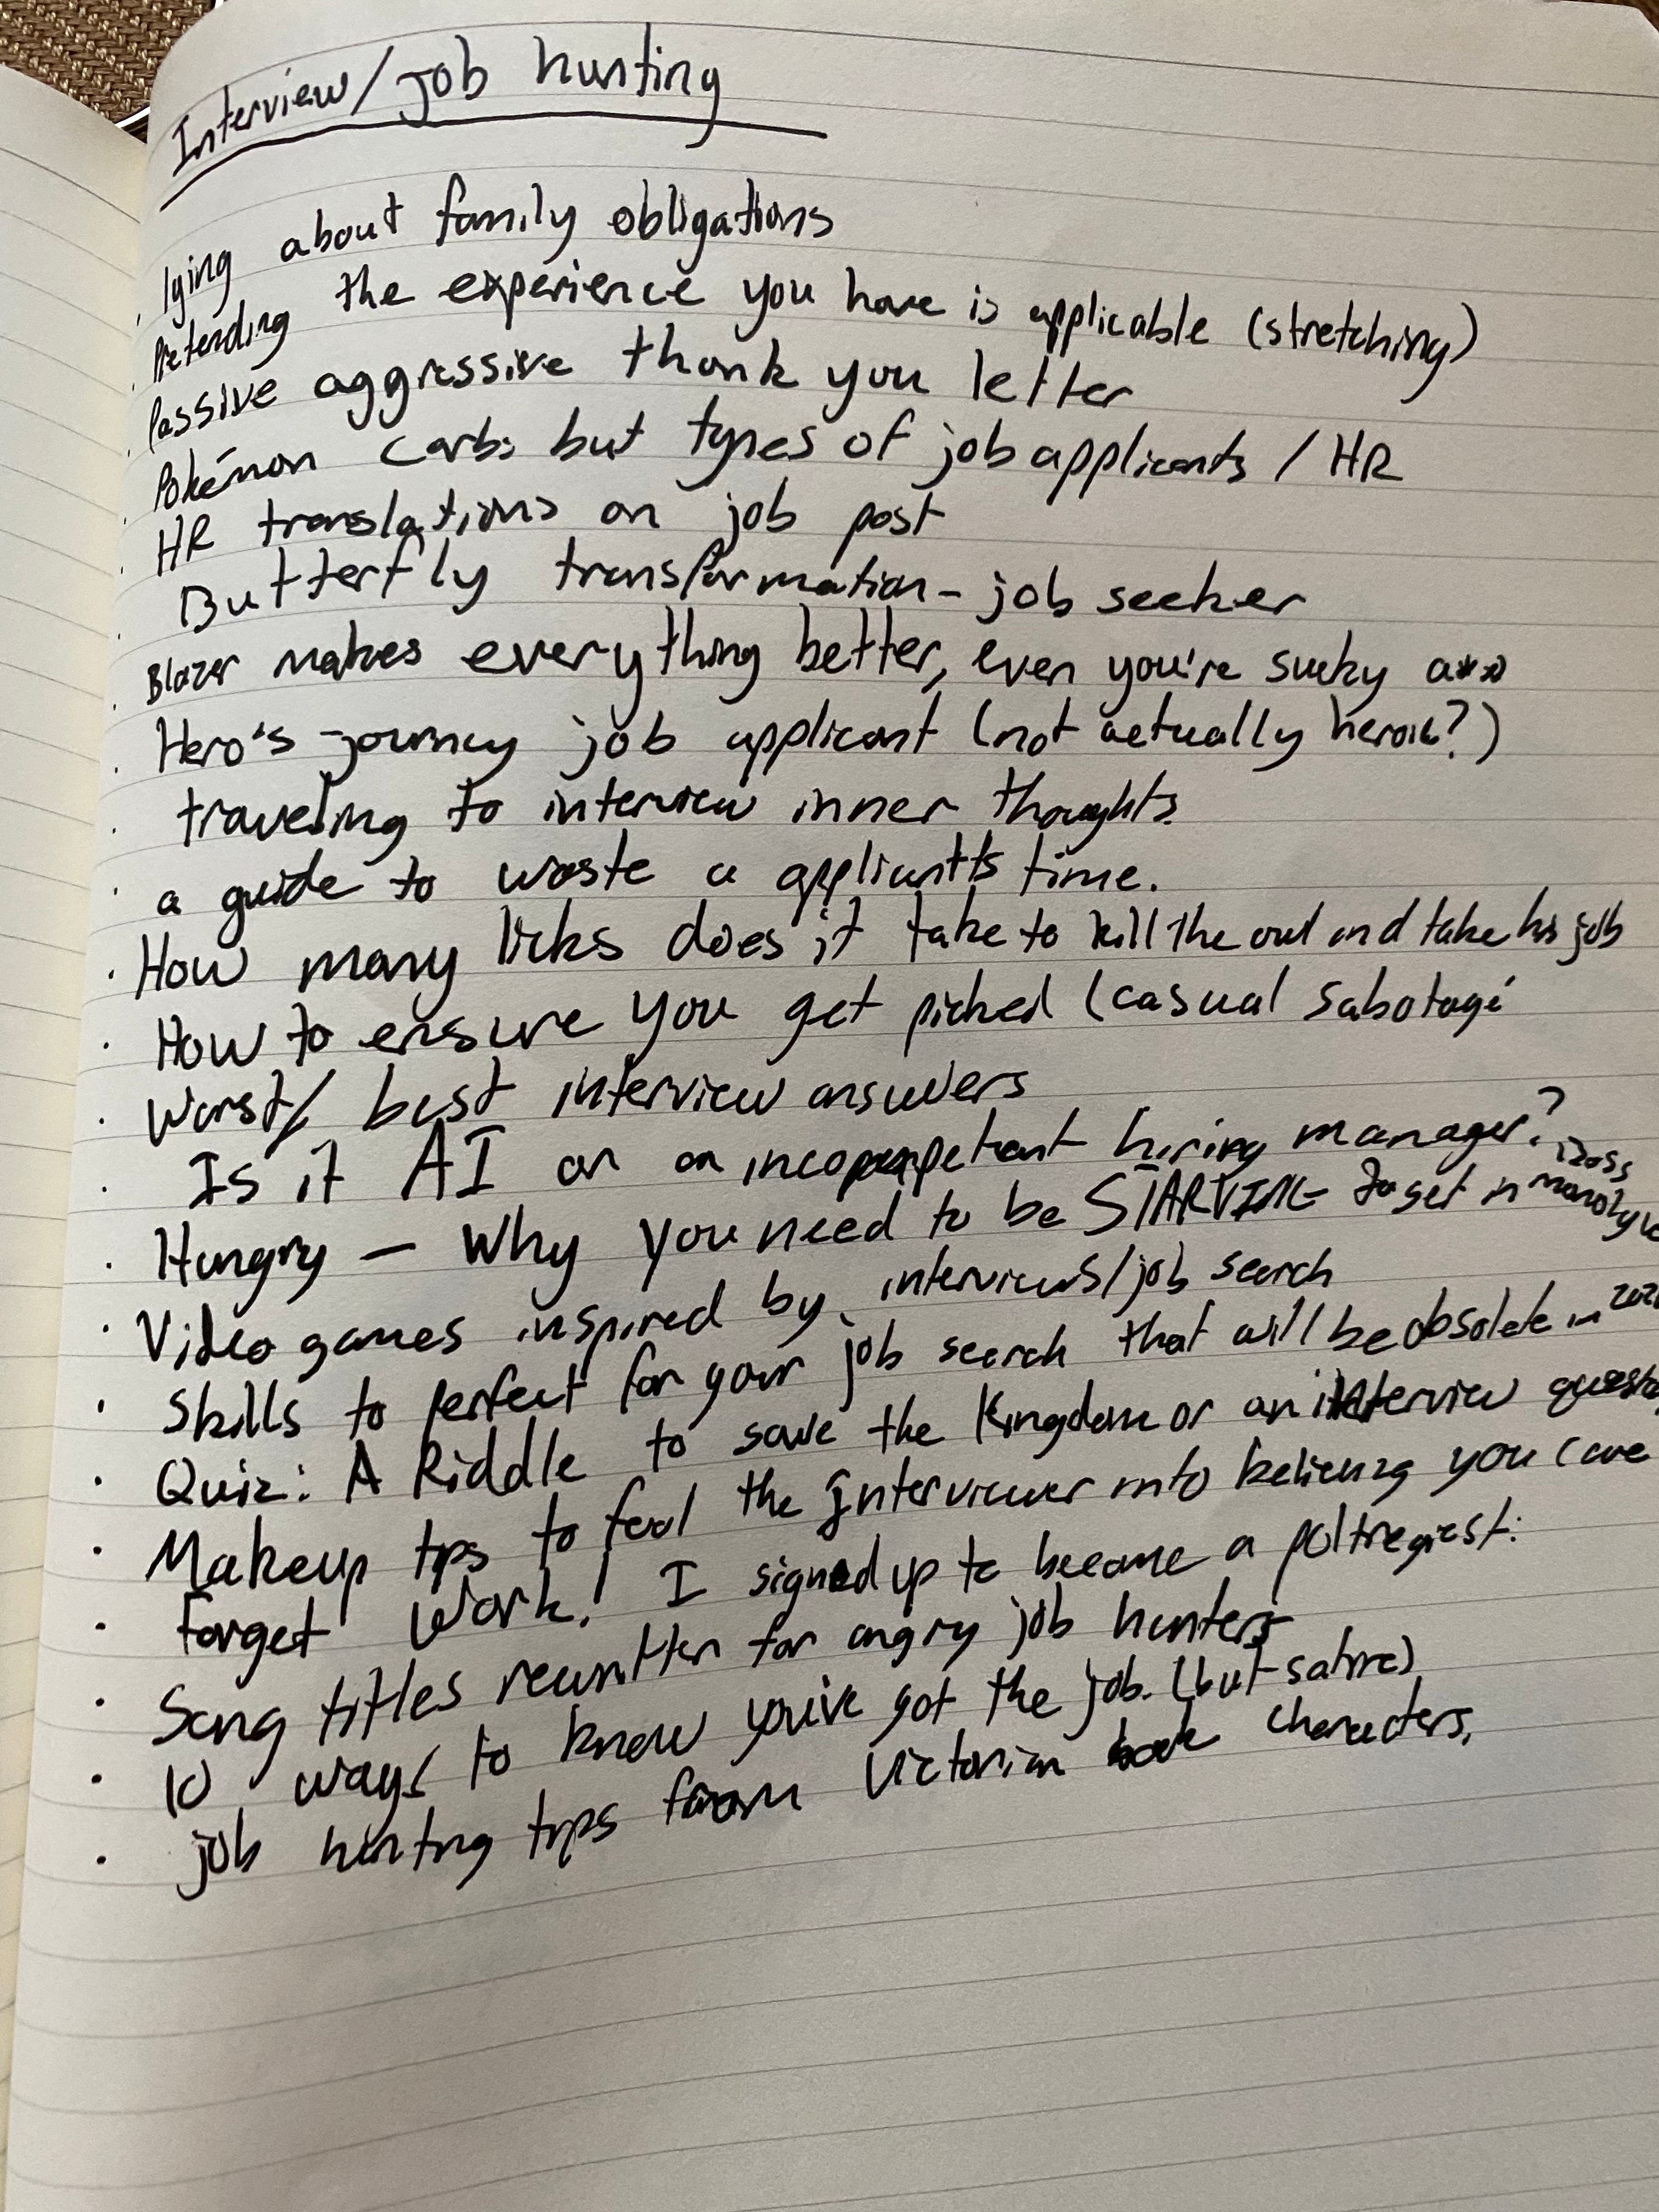 Interview/job hunting
. lying about family obligations
. Pretending the experience you have is applicable (stretching)
. Passive aggressive thank you letter
. Pokémon carbs but types of job applicants / HR
. HR translations on job post
. Butterfly transformation - job seeker
. Blazer makes everything better, even you're sucky a**
. Hero's journey job applicant (not actually heroic?)
. traveling to interview inner thoughts.
. a guide to waste a applicants time.
. How many licks does it take to kill the owl and take his job
. How to ensure you get picked (casual sabotage
. Worst/best interview answers
. Is it AI or an incompetent hiring manager?
. Hungry — Why you need to be STARVING to get in Boss
. Video games inspired by interviews/job search
. Skills to perfect for your job search that will be obsolete in
. Quiz: A Riddle to save the Kingdom or an interview
. Makeup tips to fool the Interviewer into believing you care
. Forget Work! I signed up to become a poltregiest:
. Song titles rewritten for angry job hunters
. 10 ways to know you've got the job. (but satire)
. job hunting tips from Victorian book characters.